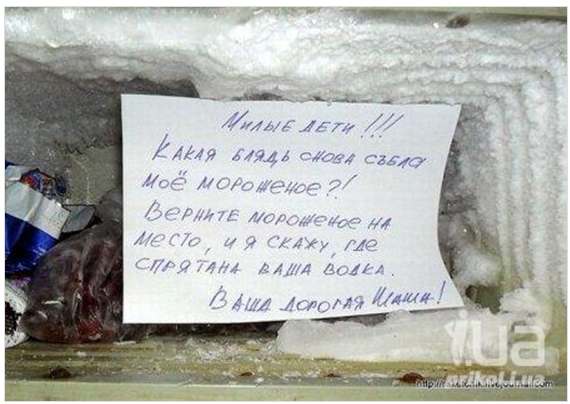 Милые дети!!!
Какая блядь снова съела
моё мороженое?!
Верните мороженое на
место, и я скажу, где
спрятана ваша водка.
Ваша дорогая Маша!
iua
prikol.i.ua